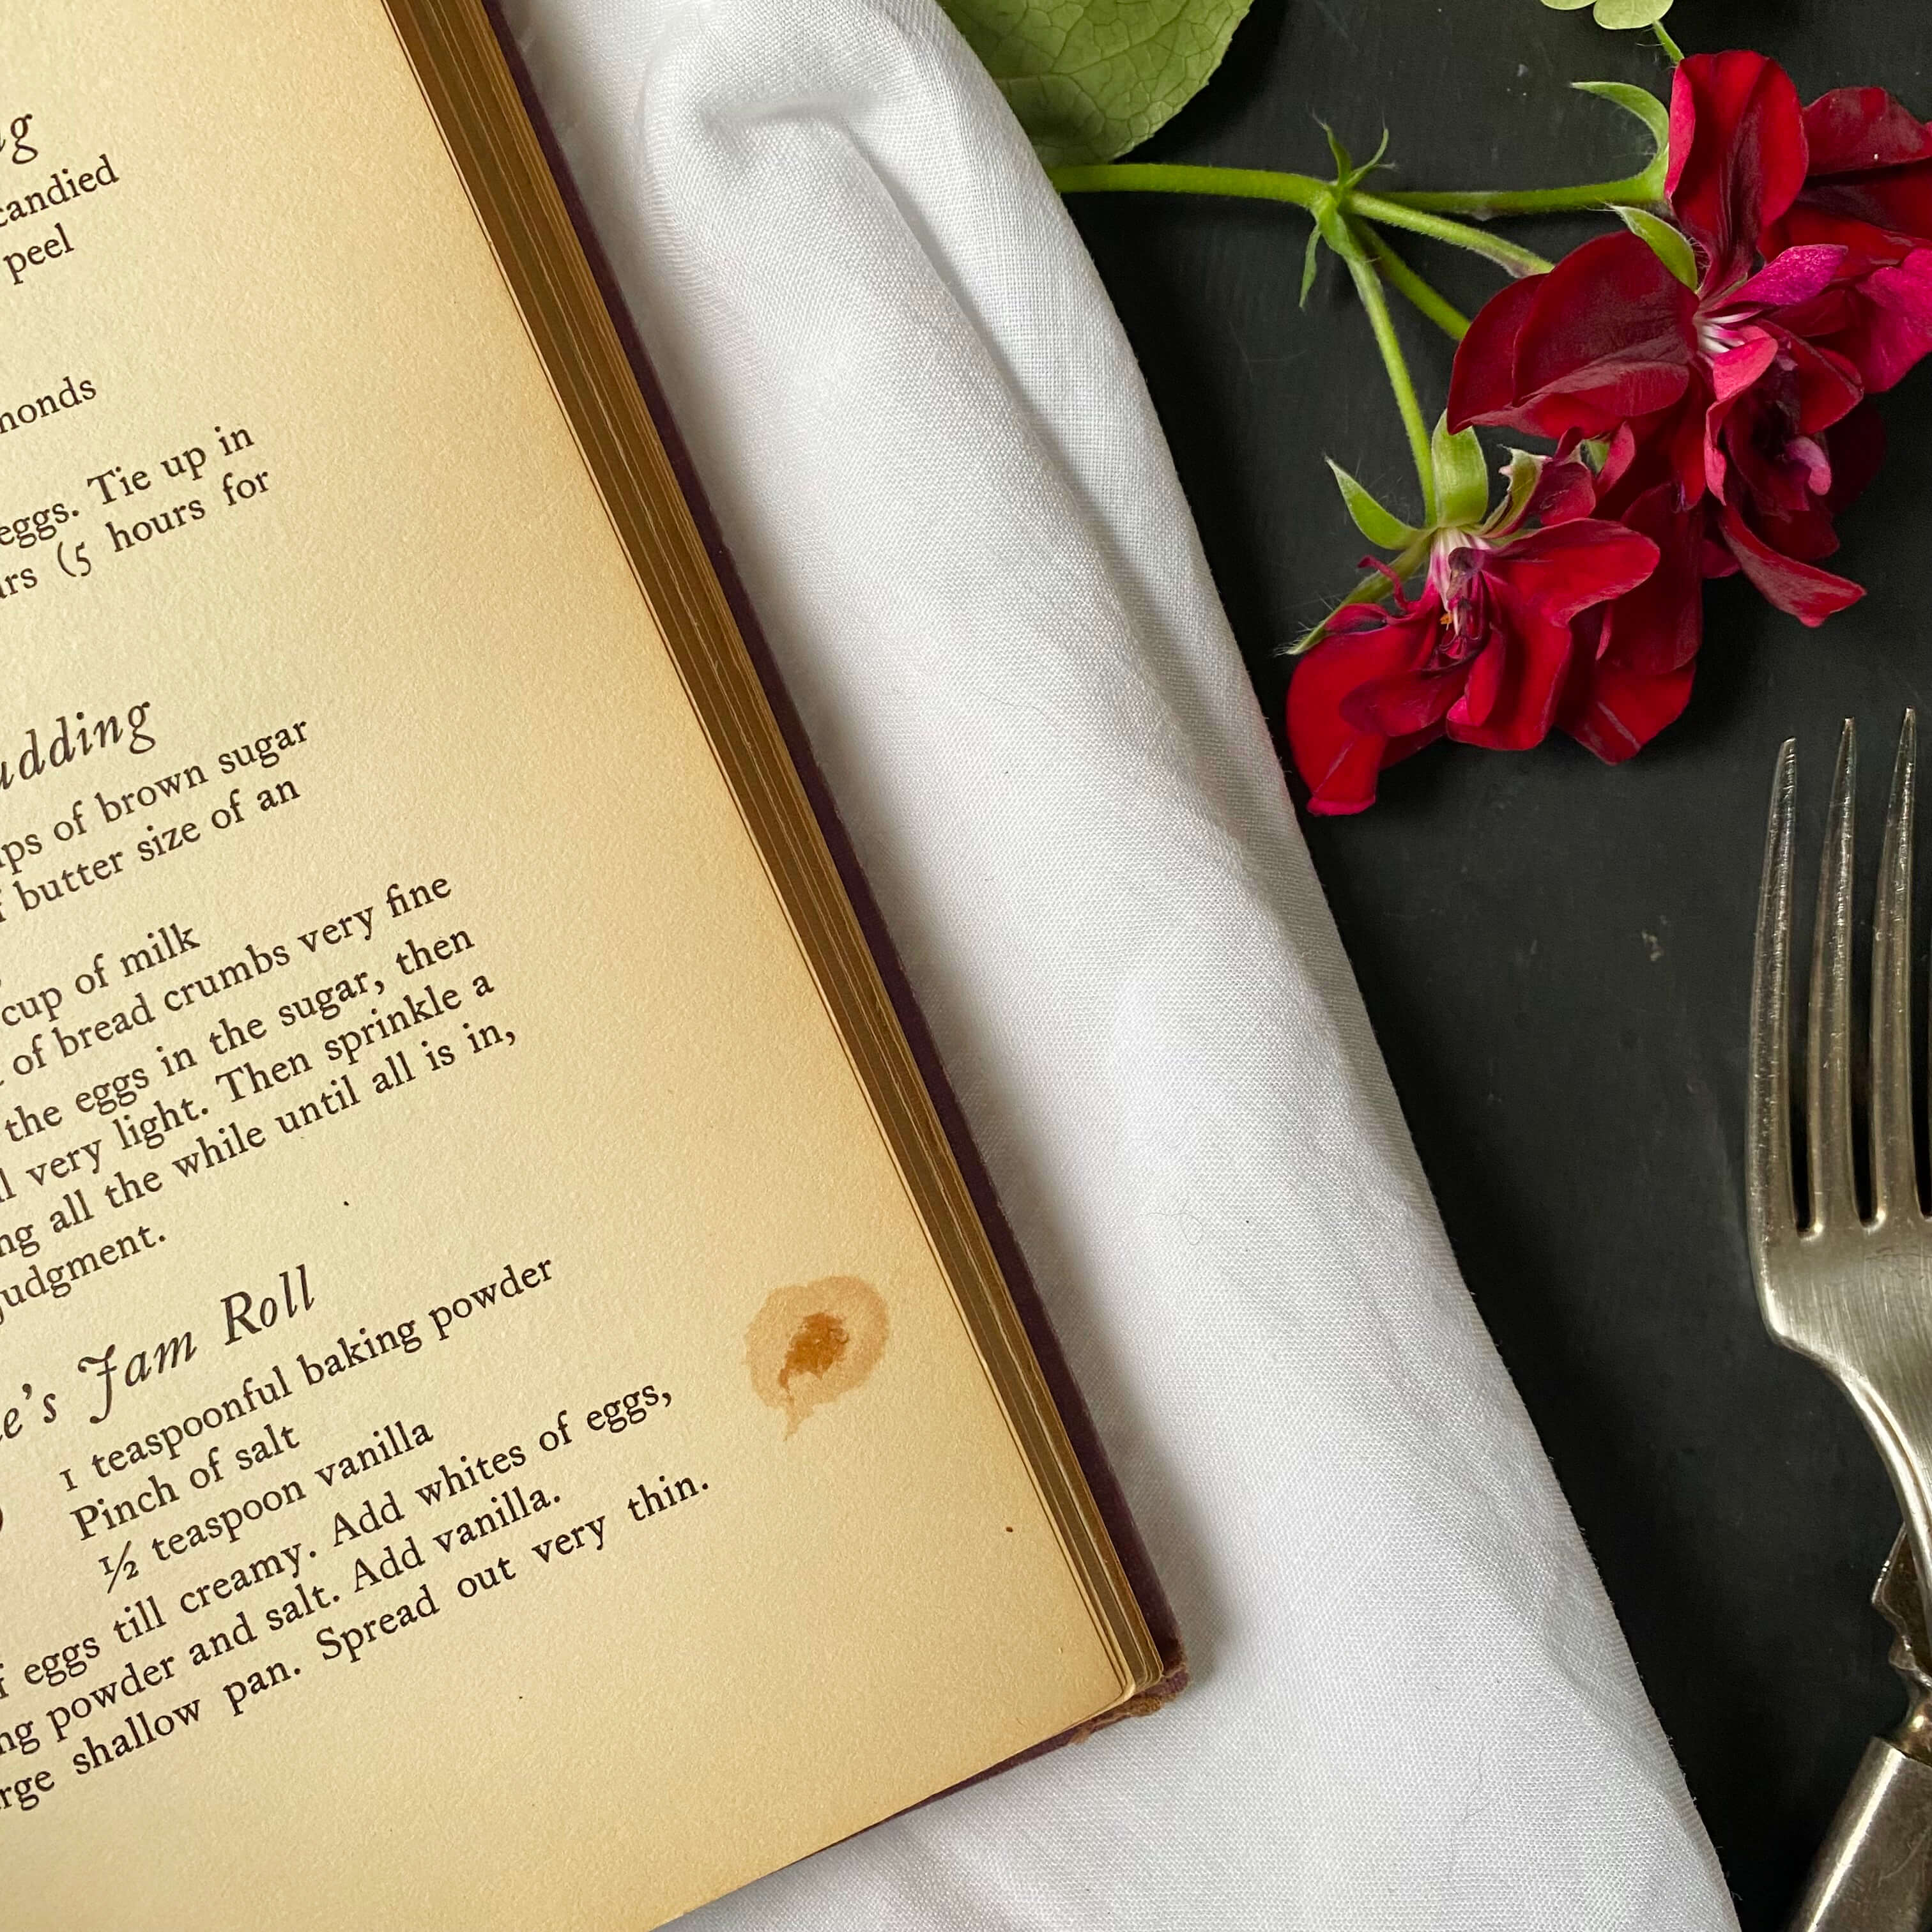 candied
peel
eggs. Tie up in
(5 hours for
of brown sugar
butter size of an
cup of milk
of bread crumbs very fine
the eggs in the sugar, then
very light. Then sprinkle a
all the while until all is in,
judgment.
Jam Roll
1 teaspoonful baking powder
Pinch of salt
½ teaspoon vanilla
eggs till creamy. Add whites of eggs,
powder and salt. Add vanilla.
shallow pan. Spread out very thin.